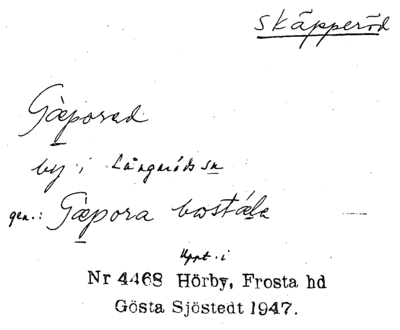 Skäpperöd
Gæporad
by i Långaröds sn
gen.: Gæpora bostála
Uppt. i
Nr 4468 Hörby, Frosta hd
Gösta Sjöstedt 1947.